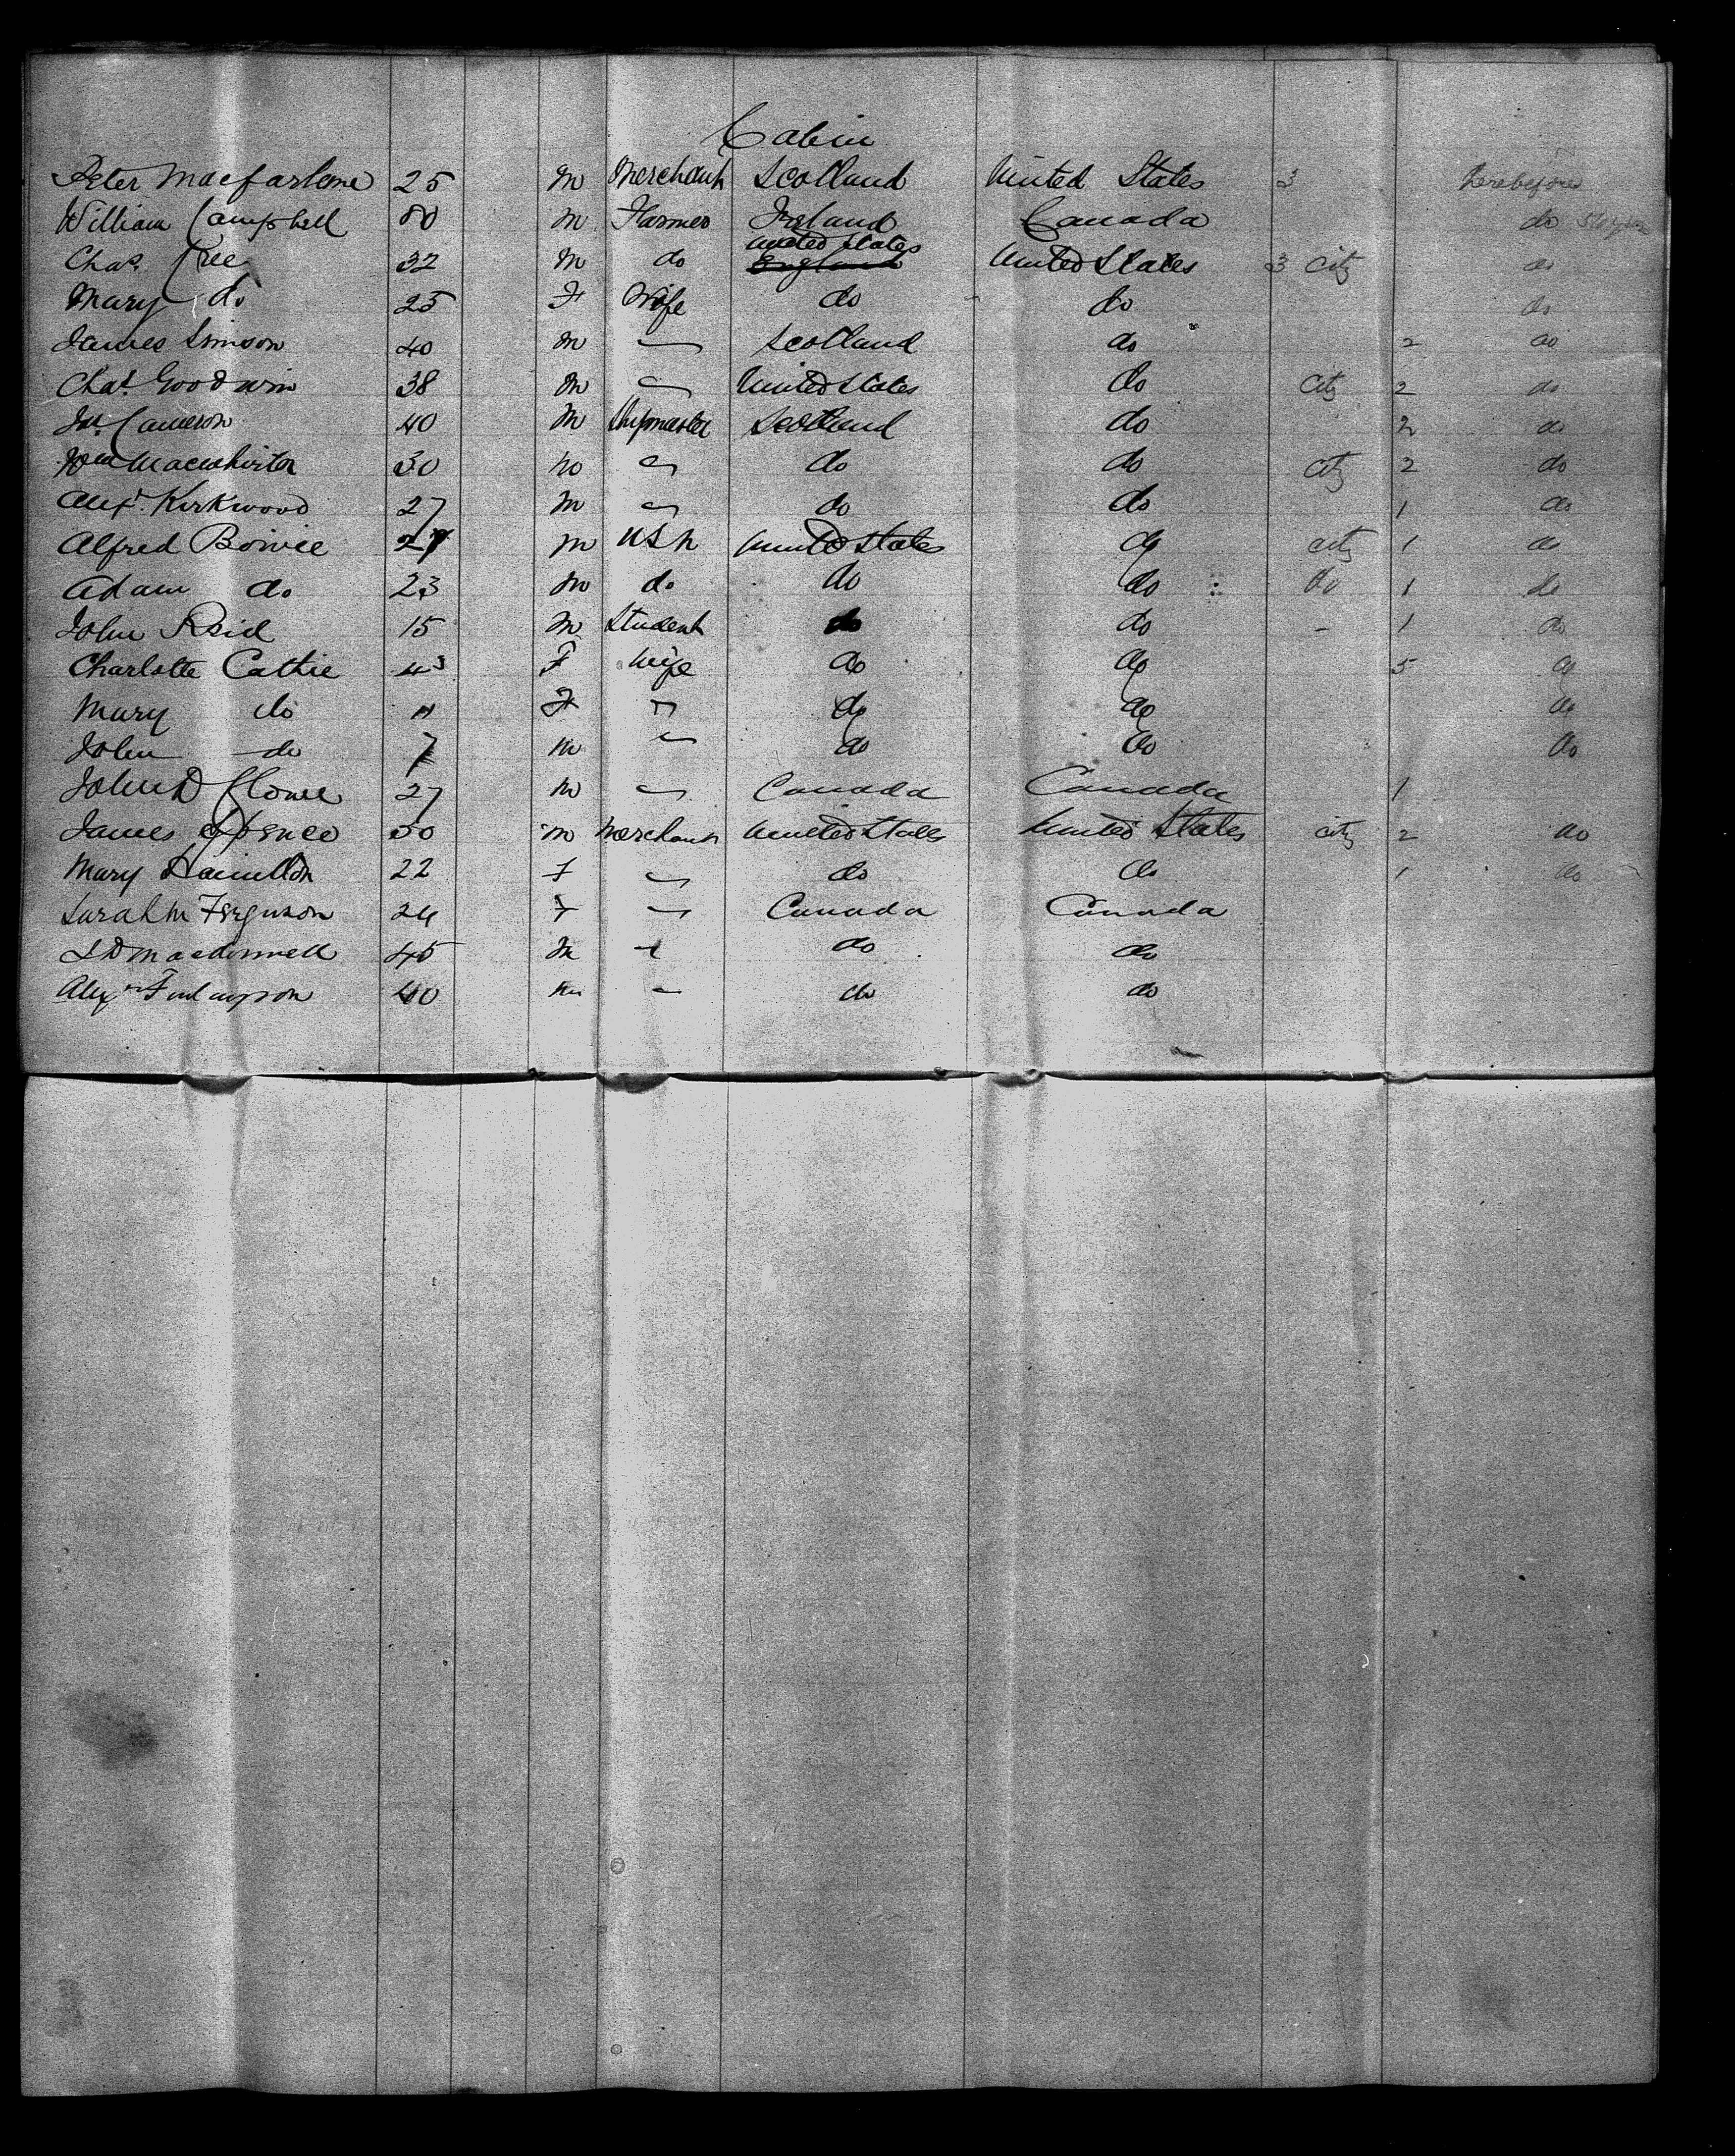 Cabin
Peter Macfarlane 25 m Merchant Scotland United States 3 here before
William Campbell m Farmer Ireland Canada do
United States
Chas. Cree 32 m do England United States 3 City do
Mary do 25 F Wife do do do
James Simson 40 m Scotland do 2 do
Chas. Goodwin 38 m United States do City 2 do
Cameron 40 m Shipmaster Scotland do 2 do
Wm Macwhirter 30 m do do City 2 do
Alexr. Kirkwood 27 m do do 1 do
Alfred Bowie 27 m United States do City 1 do
Adam do 23 m do do do do 1 do
John Reid 15 m Student do do - 1 do
Charlotte Cathie F wife do do 5 do
Mary do F " do do do
John do 7 m " do do do
John D 27 m " Canada Canada 1
James Spence 50 m Merchant United States United States City 2 do
Mary Hamilton 22 F " do do 1 do
Sarah M Ferguson 24 F " Canada Canada
Macdonnell 45 m do do
Alexr Finlayson 40 m do do